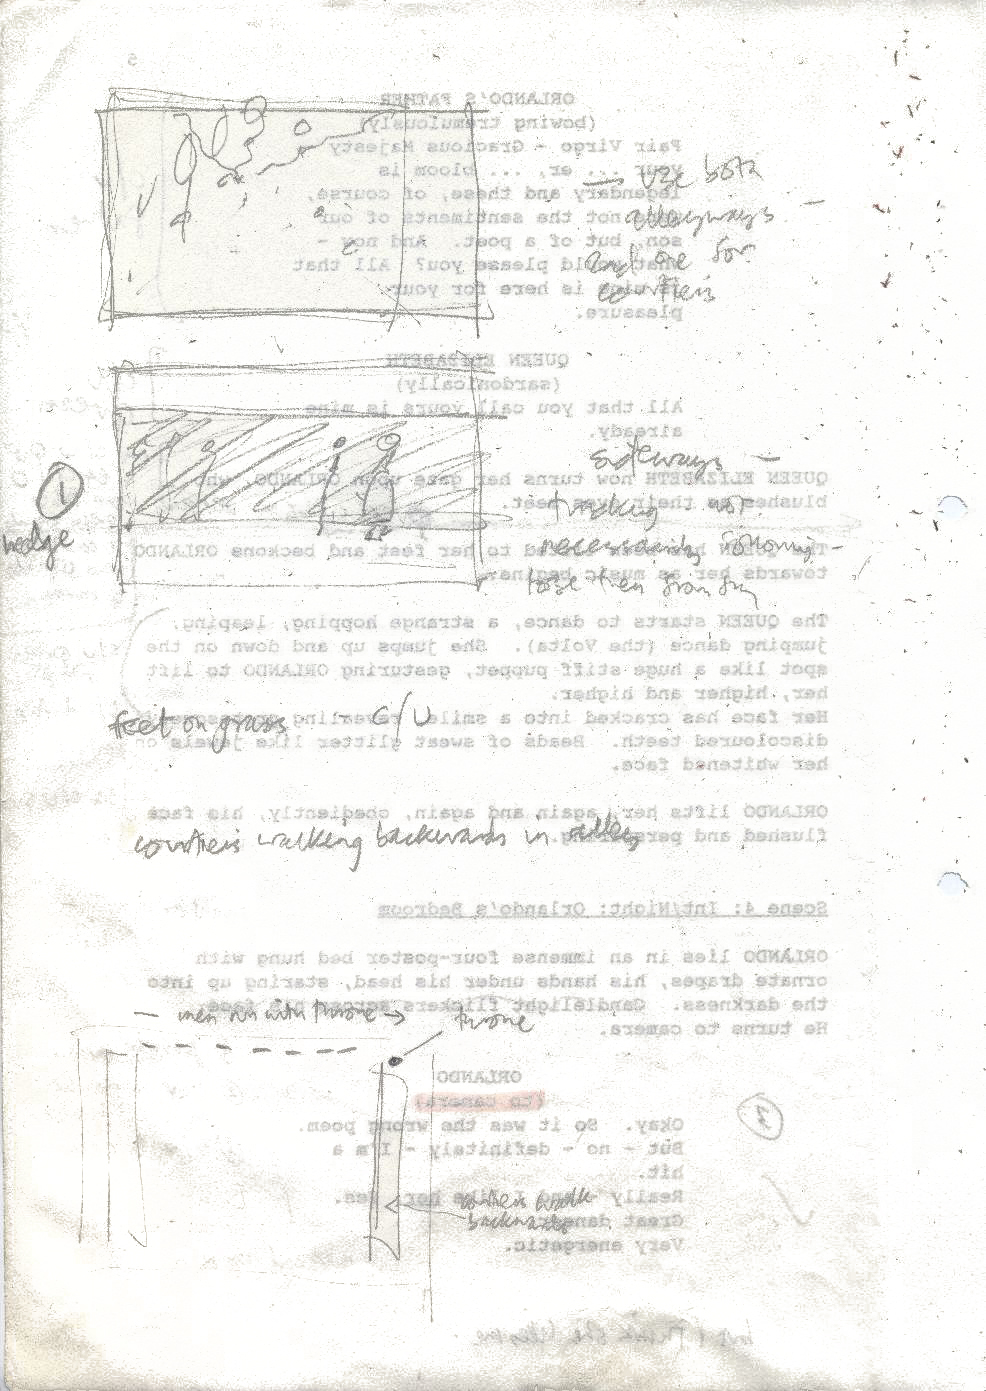 5
ORLANDO'S FATHER
(bowing tremulously)
Fair Virgo - Gracious Majesty
your ... er, ... bloom is
legendary and these, of course,
are not the sentiments of our
son, but of a poet. And now -
what would please you? All that
is here for your
pleasure.
→ use both
alleyways -
and one for
courtiers
QUEEN ELIZABETH
(sardonically)
All that you call yours is mine
already.
QUEEN ELIZABETH now turns her gaze upon ORLANDO, who
blushes as their eyes meet.
The QUEEN to her feet and beckons ORLANDO
towards her as music begins.
1
hedge
sideways -
tracking not
necessarily following -
lose them from
The QUEEN starts to dance, a strange hopping, leaping,
jumping dance (the Volta). She jumps up and down on the
spot like a huge stiff puppet, gesturing ORLANDO to lift
her, higher and higher.
Her face has cracked into a smile revealing
discoloured teeth. Beads of sweat glitter like jewels on
her whitened face.
feet on grass - C/U
ORLANDO lifts her, again and again, obediently, his face
flushed and perspiring.
courtiers walking backwards in alley
Scene 4: Int/Night: Orlando's Bedroom
ORLANDO lies in an immense four-poster bed hung with
ornate drapes, his hands under his head, staring up into
the darkness. Candlelight flickers across his face.
He turns to camera.
— men run with throne →
throne
ORLANDO
(to camera)
Okay. So it was the wrong poem.
But - no - definitely - I'm a
hit.
Really - and I like her. Yes.
Great dancer.
Very energetic.
courtiers walk
backwards